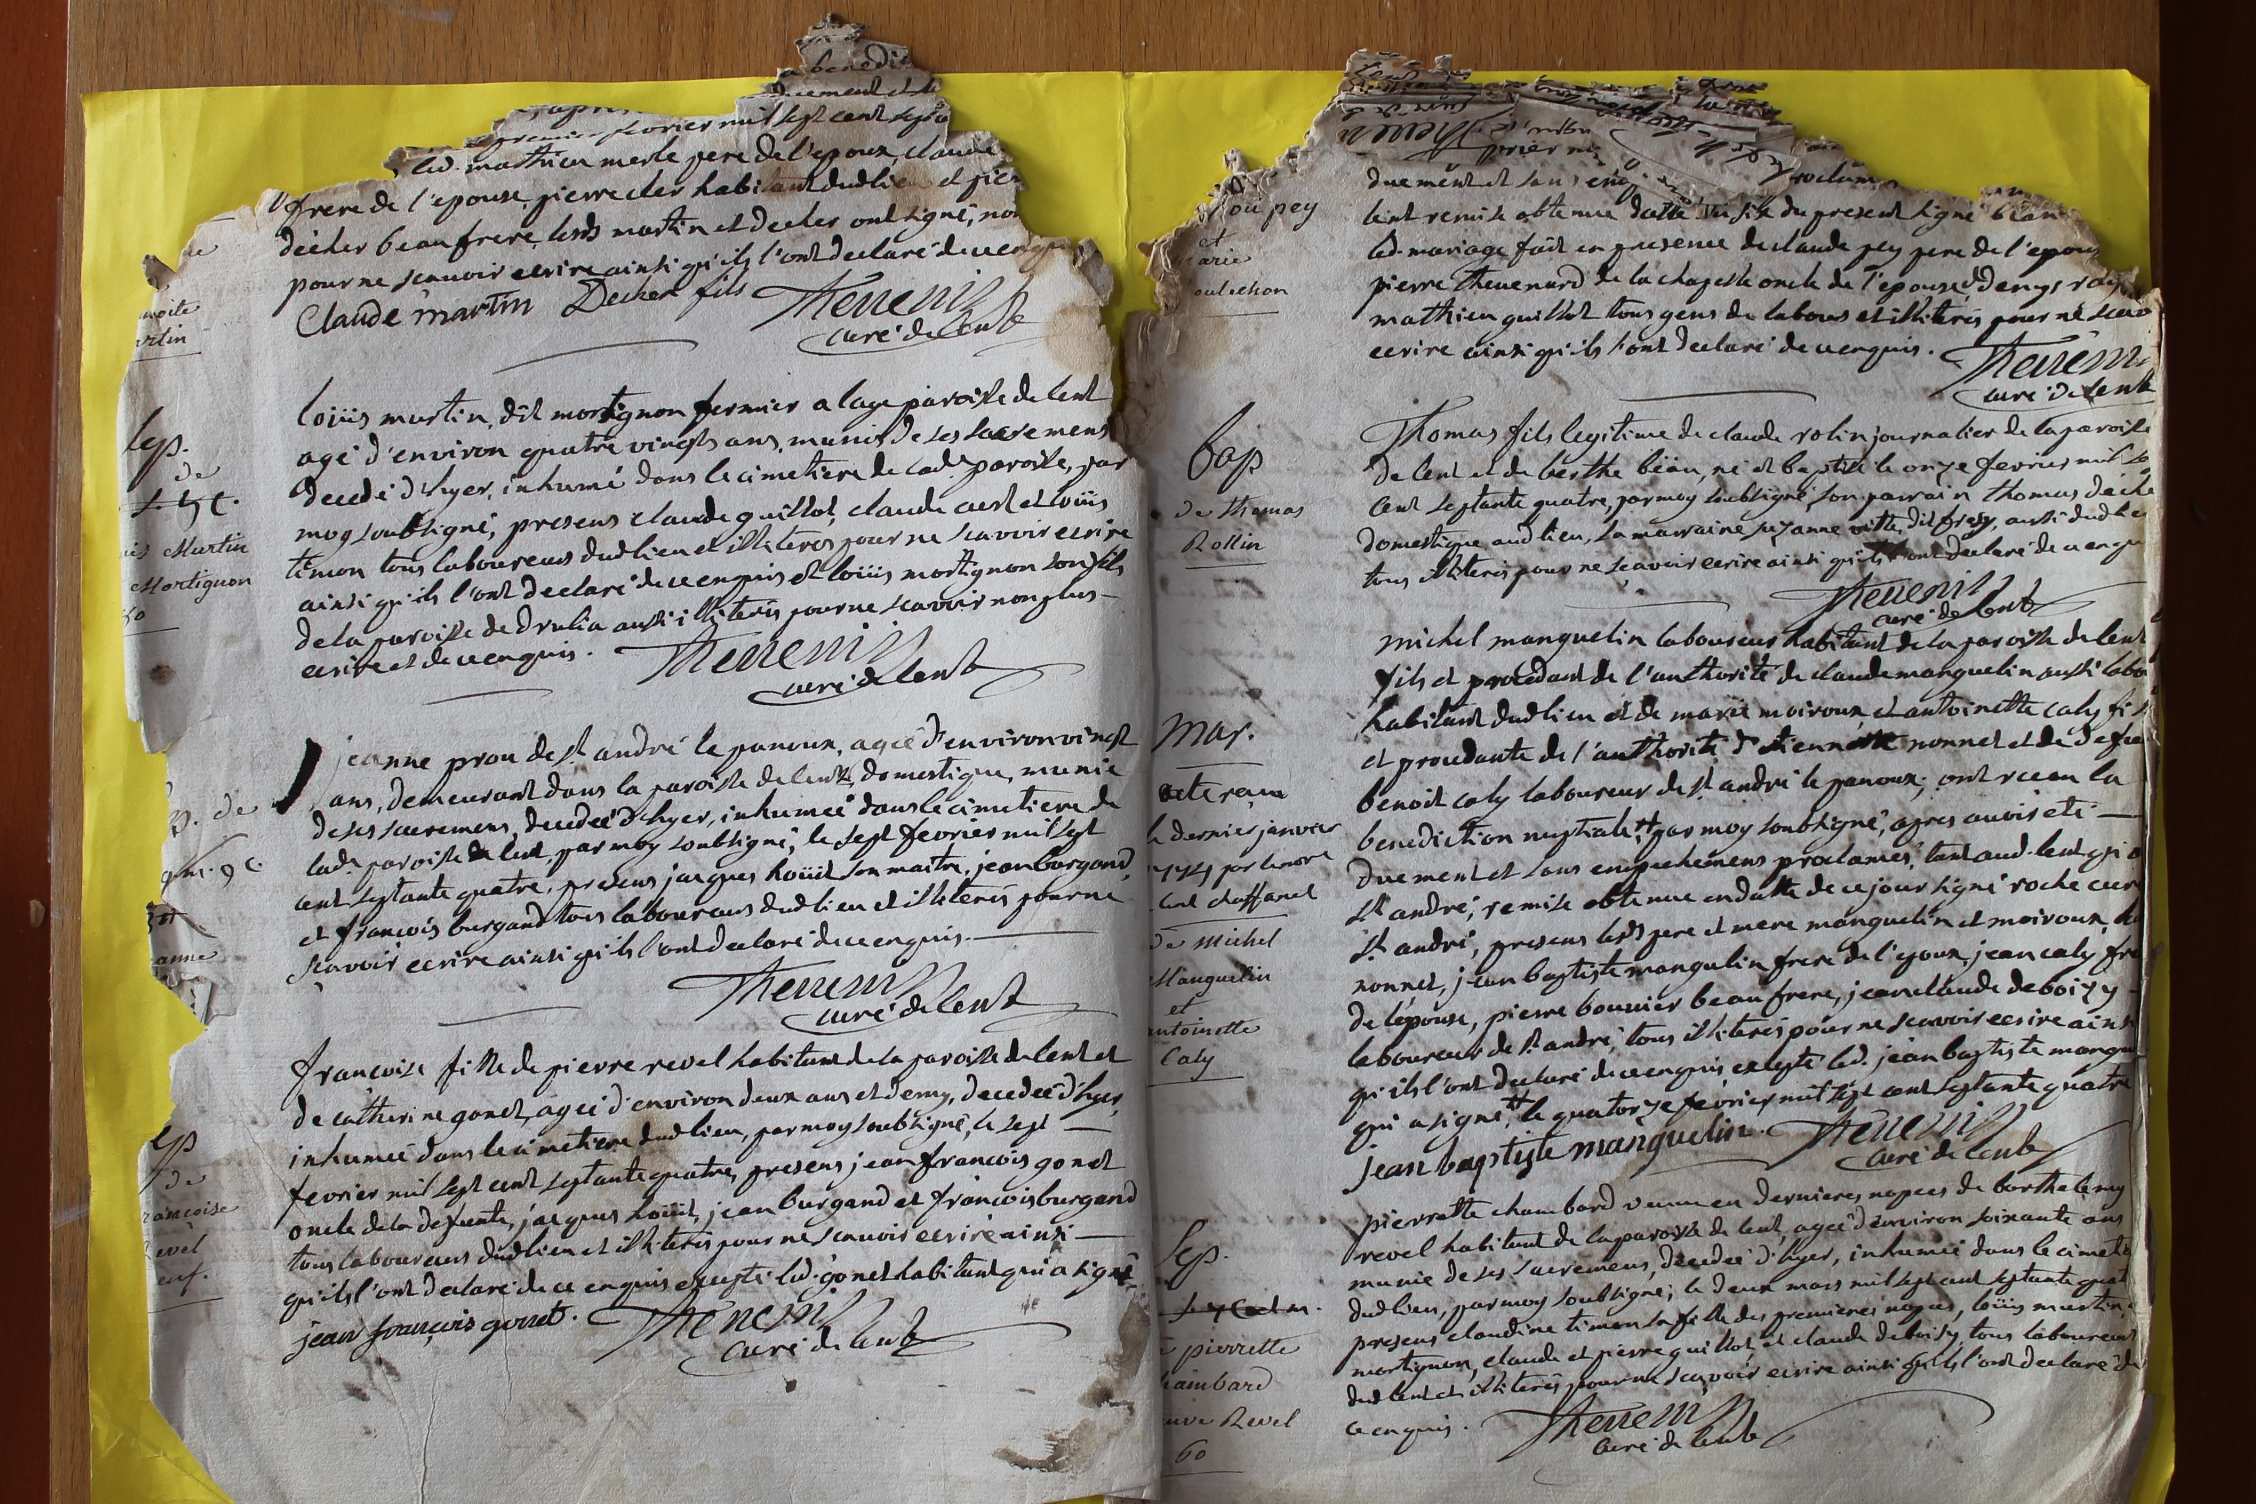 a benedi
duement et
après
premier fevrier mil sept cent sept
led. mathieu merle pere de l'epoux, claude
frere de l'epouse, pierre decher habitant dud lieu et pier
decher beaufrere, lesds martin et decher ont signé, non
pour ne scavoir ecrire ainsi qu'ils l'ont declaré de ce enqu
Claude martin Decher fils Thevenin
curé de lent
martin
loüis martin, dit mortignon fermier a lage paroisse de lent
agé d'environ quatre vingts ans, munis de ses sacremens
decedé d'hyer, inhumé dans le cimetiere de lade paroisse, par
moy soubsigné, presens claude guillot, claude cuert et loüis
timon tous laboureurs dud lieu et illiterés pour ne scavoir ecrire
ainsi qu'ils l'ont declaré de ce enquis et loüis mortignon son fils
de la paroisse de drulia aussi illiterés pour ne scavoir non plus
ecrire et de ce enquis. Thevenin
curé de lent
Sep.
de
Martin
Mortignon
jeanne prou de st. andré le panoux, ageé d'environ vingt
ans, demeurant dans la paroisse de lent, domestique, munie
de ses sacremens, decedeé d'hyer, inhumeé dans le cimetiere de
lade. paroisse de lent, par moy soubsigné, le sept fevrier mil sept
cent septante quatre, presens jacques hoüit son maitre, jean burgand,
et francois burgand tous laboureurs dud lieu et illiterés pour ne
scavoir ecrire ainsi qu'ils l'ont declaré de ce enquis.
Thevenin
curé de lent
p. de
anne
francoise fille de pierre revel habitant de la paroisse de lent et
de catherine gonet, ageé d'environ deux ans et demy, decedeé d'hyer,
inhumeé dans le cimetiere dud lieu, par moy soubsigné, le sept
fevrier mil sept cent septante quatre, presens jean francois gonet
oncle de la defunte, jacques hoüit, jean burgand et francois burgand
tous laboureurs dud lieu et illiterés pour ne scavoir ecrire ainsi
qu'ils l'ont declaré de ce enquis excepté led. gonet habitant qui a signé
jean françois gonet. Thevenin
curé de lent
ep
de
rancoise
evel
enf.
proclam
duement et sans
lent remise obtenue datte du six du present signé
led. mariage fait en presence de claude pey pere de l'epoux
pierre thevenard de la chapelle oncle de l'epouse, denys
mathieu guillot tous gens de labour et illiterés pour ne scav
ecrire ainsi qu'ils l'ont declaré de ce enquis. Thevenin
curé de lent
pey
et
arie
Thomas fils legitime de claude rolin journalier de la paroisse
de lent et de berthe béau, né et baptisé le onze fevrier mil se
cent septante quatre, par moy soubsigné, son parrain thomas deche
domestique aud lieu, sa marraine suzanne dit frery, aussi dud lieu
tous illiterés pour ne scavoir ecrire ainsi qu'ils l'ont declaré de ce enqu
Thevenin
curé de lent
bap
de thomas
Rollin
michel manguelin laboureur habitant de la paroisse de lent
fils et procedant de l'authorité de claude manguelin aussi labo
habitant dud lieu et de marie moiroux et antoinette caly fi
et procedante de l'authorité d'etiennette nonnet et de defu
benoit caly laboureur de st. andré le panoux; ont recu la
benediction nuptiale # par moy soubsigné, apres avoir eté
duement et sans empechemens proclamés, tant aud. lent qu'a
st. andré, remise obtenue en datte de ce jour signé roche curé
st. andré, presens lesds pere et mere manguelin et moiroux, lad
nonnet, jean baptiste manguelin frere de l'epoux, jean caly fre
de l'epouse, pierre bouvier beaufrere, jean claude deboizy
laboureur de st. andré, tous illiterés pour ne scavoir ecrire ains
qu'ils l'ont declaré de ce enquis excepté led. jean baptiste mangu
qui a signé, # le quatorze fevrier mil sept cent septante quatre
jean baptiste manguelin. Thevenin
curé de lent
Mar.
acte reçu
le dernier janvier
1774 par
chaffanel
de Michel
Manguelin
et
antoinette
Caly
pierrette chambard veuve en dernieres nopces de barthelemy
revel habitant de la paroisse de lent, ageé d'environ soixante ans
munie de ses sacremens, decedeé d'hyer, inhumeé dans le cimeti
dud lieu, par moy soubsigné, le deux mars mil sept cent septante quat
presens claudine timon sa fille des premieres nopces, loüis martin,
mortignon, claude et pierre guillot, et claude deboisy, tous laboureurs
dud lent et illiterés pour ne scavoir ecrire ainsi qu'ils l'ont declaré de
ce enquis. Thevenin
curé de lent
Sep.
pierrette
hambard
euve Revel
60